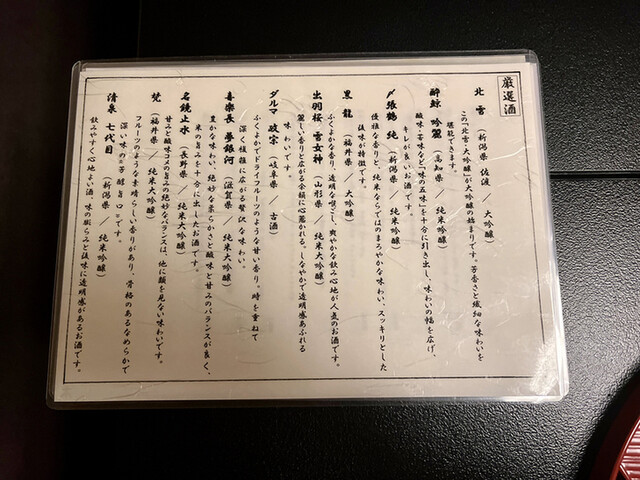 厳選酒
北雪 (新潟県 佐渡 / 大吟醸)
この「北雪大吟醸」が大吟醸の始まりです。芳香さと繊細な味わいを
堪能できます。
酔鯨 吟麗 (高知県 / 純米吟醸)
酸味・苦味など「味の五味」を十分に引き出し、味わいの幅を広げ、
キレが良いお酒です。
〆張鶴 純 (新潟県 / 純米吟醸)
優雅な香りと、純米ならではのまろやかな味わい、スッキリとした
後味が特徴です。
黒龍 (福井県 / 大吟醸)
ふくよかな香り、透明な喉ごし、爽やかな飲み心地が人気のお酒です。
出羽桜 雪女神 (山形県 / 純米大吟醸)
麗しい香りと広がる余韻に心惹かれる。しなやかで透明感あふれる
味わいです。
ダルマ 政宗 (岐阜県 / 古酒)
ふくよかでドライフルーツのような甘い香り。時を重ねて
深く複雑に広がる贅沢な味わい。
喜楽長 夢銀河 (滋賀県 / 純米大吟醸)
豊かな味わい、絶妙な柔らかさと酸味と甘みのバランスが良く、
米の旨みを十分に出したお酒です。
名鏡止水 (長野県 / 純米大吟醸)
甘みと酸味コメの旨みの絶妙なバランスは、他に類を見ない味わいです。
梵 (福井県 / 純米大吟醸)
フルーツのような素晴らしい香りがあり、骨格のあるなめらかで
深い味の=芳醇旨口=です。
清泉 七代目 (新潟県 純米吟醸)
飲みやすく心地よい酒、味の膨らみと後味に透明感があるお酒です。